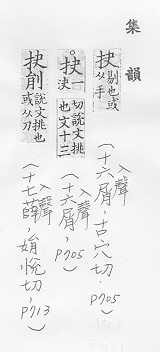 集韻
抉 剔也或从手
抉 一決切說文挑也文十三
抉削 說文挑也或从刀
(入聲十六屑,古穴切,P705)
(入聲十六屑,P705)
(入聲十七薛,娟悅切,P713)